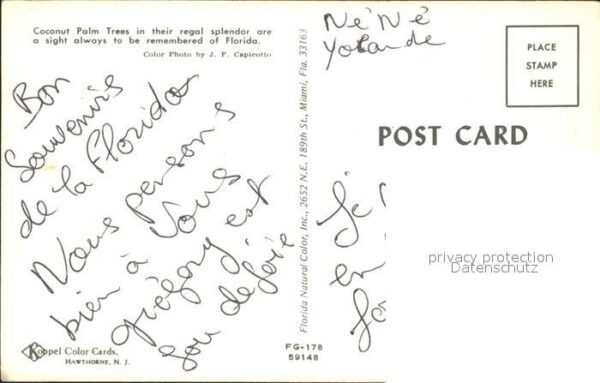 Coconut Palm Trees in their regal splendor are
a sight always to be remembered of Florida.
Color Photo by J. F. Capicotto
Bon
Souvenirs
de la Florida
Nous persons
bien à Vous
grégory est
fou de joie
Koppel Color Cards,
HAWTHORNE, N. J.
Florida Natural Color, Inc., 2652 N.E. 189th St., Miami, Fla. 33163
FG-178
59148
Né Né
Yolande
PLACE
STAMP
HERE
POST CARD
en
privacy protection
Datenschutz